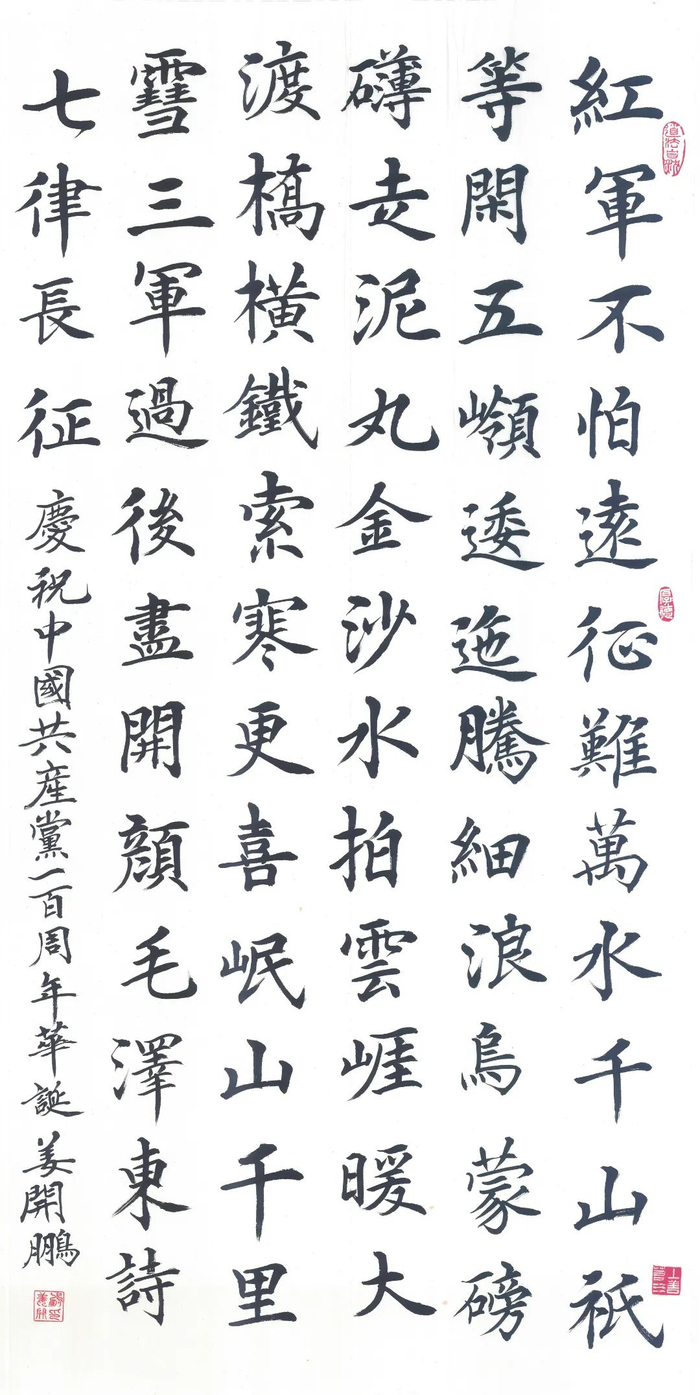 紅軍不怕遠征難萬水千山祇
等閑五嶺逶迤騰細浪烏蒙磅
礴走泥丸金沙水拍雲崕暖大
渡橋橫鐵索寒更喜岷山千里
雪三軍過後盡開顔毛澤東詩
七律長征 慶祝中國共產黨一百周年華誕 姜開鵬